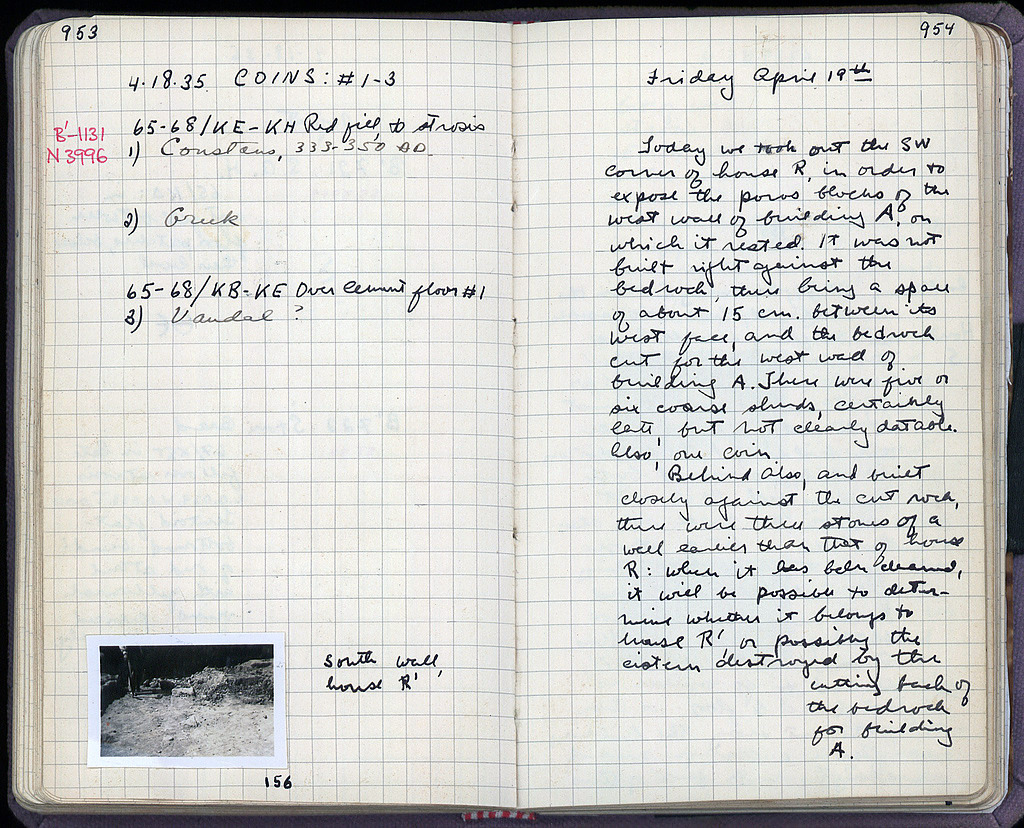 953
4.18.35. COINS: #1-3
B'-1131
N 3996
65-68/KE-KH Red fill, to strosis
1) Constans, 333-350 AD.
2) Greek
65-68/KB-KE Over cement floor #1
3) Vandal ?
South wall,
house R'
156
954
Friday April 19th
Today we took out the SW
corner of house R, in order to
expose the poros blocks of the
west wall of building A, on
which it rested. It was not
built right against the
bedrock, there being a space
of about 15 cm. between its
west face, and the bedrock
cut for the west wall of
building A. There were five or
six coarse sherds, certainly
late, but not clearly datable.
Also, one coin.
Behind also, and built
closely against the cut rock,
there were three stones of a
wall earlier than that of house
R: when it has been cleaned,
it will be possible to deter-
mine whether it belongs to
house R' or possibly the
cistern destroyed by the
cutting back of
the bedrock
for building
A.